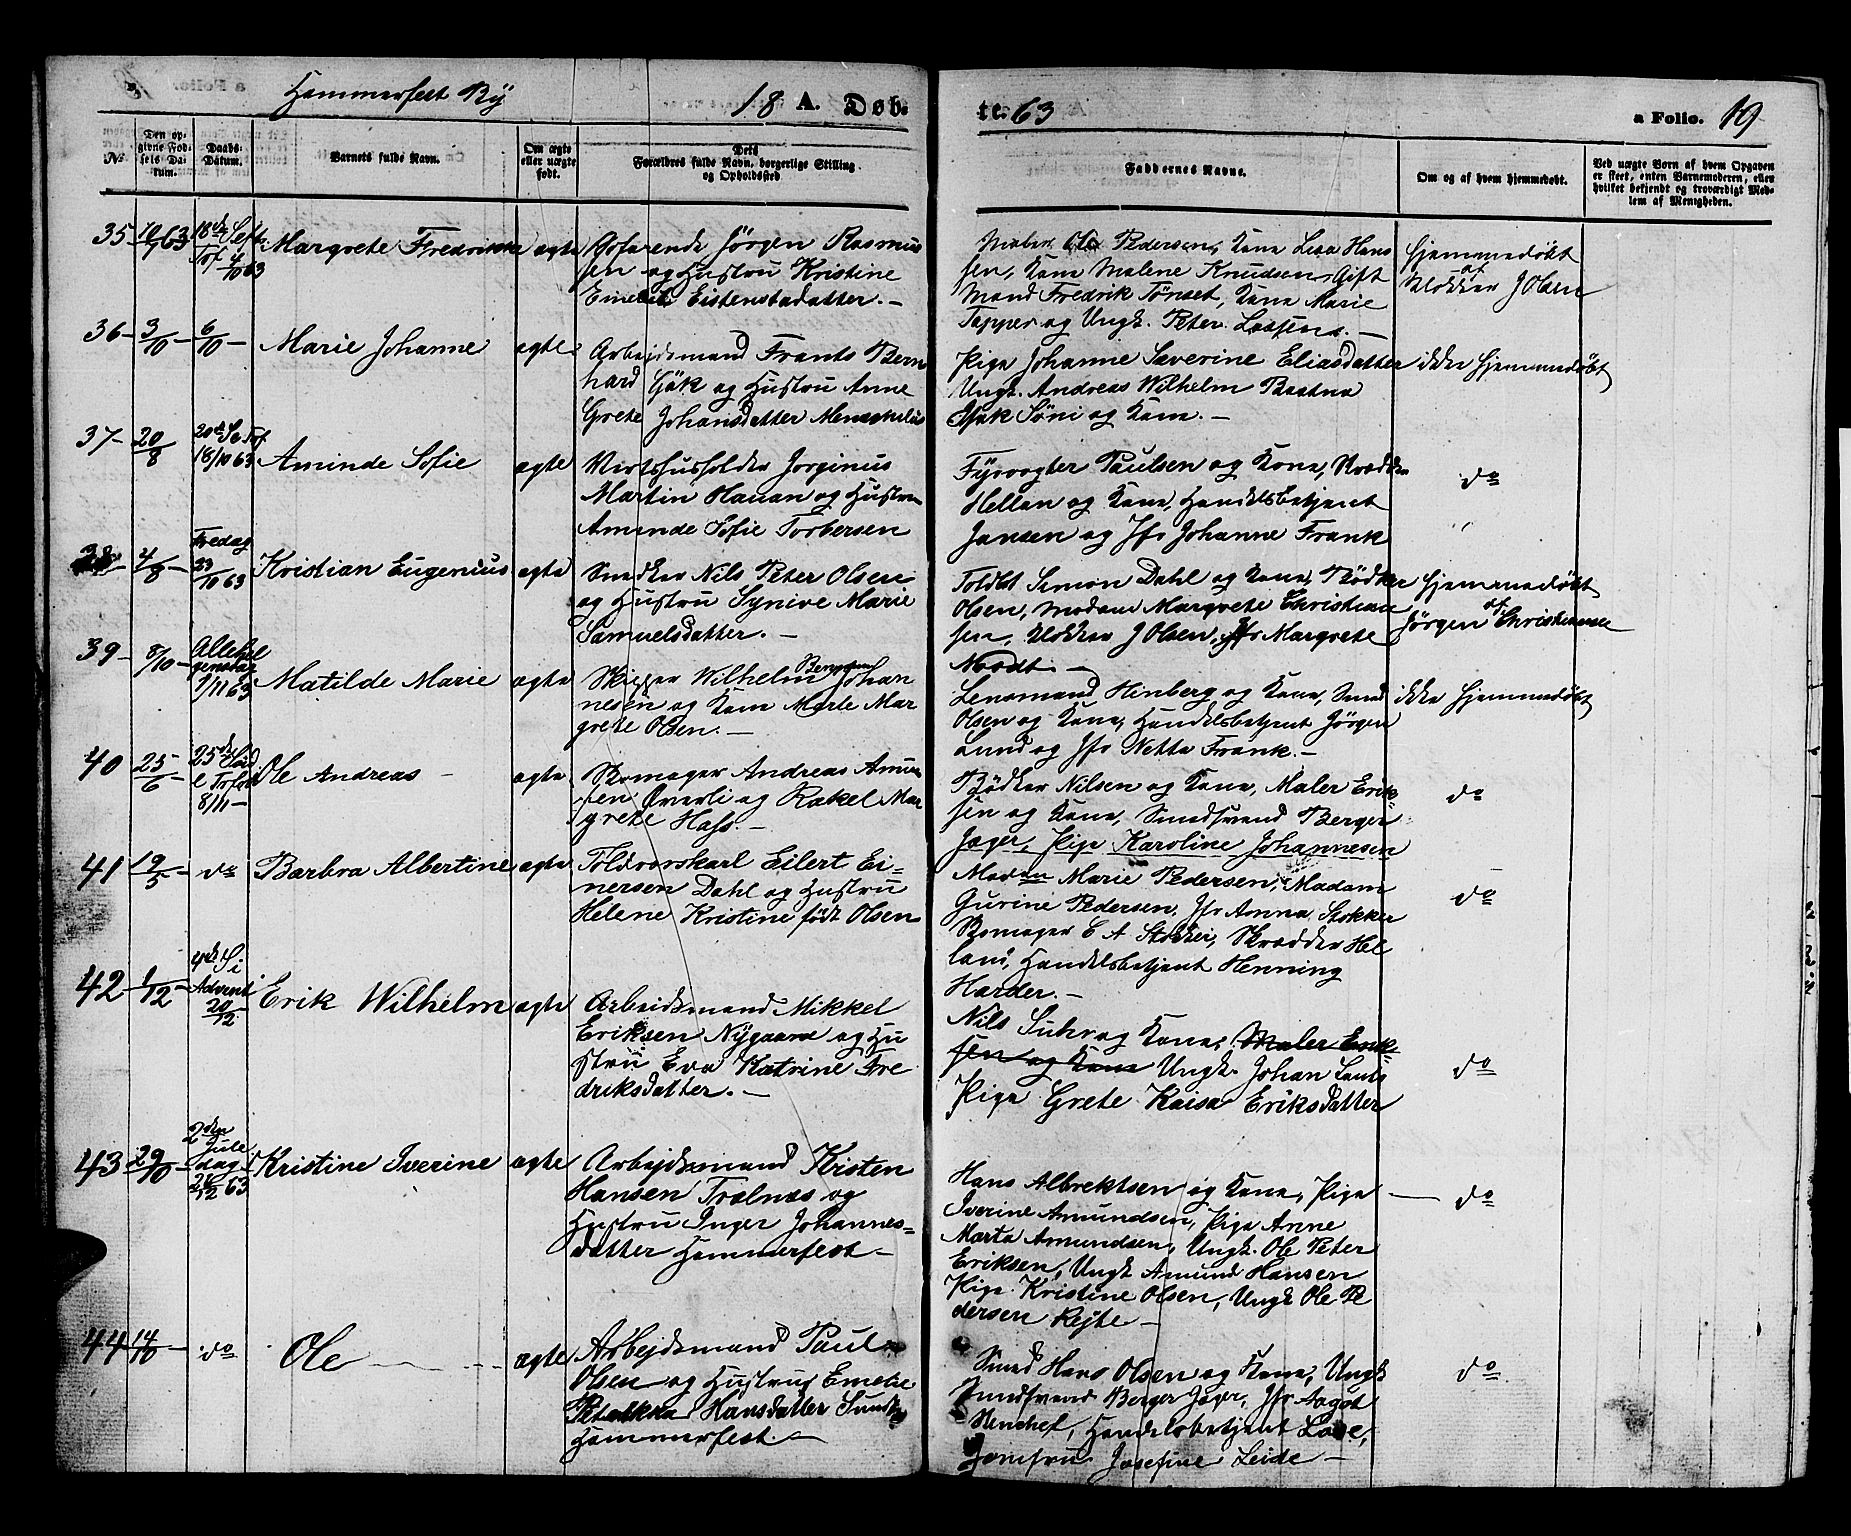 Hammerfest By 18 A. Døb-
te. 63 a Folio. 19
No
Den op-
givne Fød-
sels Da-
tum.
Daabs-
Datum.
Barnets fulde Navn.
Om ægte
eller uægte
født.
Dets
Forældres fulde Navn, borgerlige Stilling
og Opholdssted.
Faddernes Navne.
Om og af hvem hjemmedøbt.
Ved uægte Børn af hvem Opgaven
er skeet, enten Barnemoderen, eller
hvilket bekjendt og troværdigt Med-
lem af Menigheden.
35
18de Seft.
Trf
4/10 63
Margrete Fredrikke
ægte
Gofarende Jørgen Rasmus
sen og Hustru Kristine
Emelie Eistenstadatter. -
Ole Pedersen, Kone Lisa Hans
sen, Kone Malene Knudsen, Gift
Mand Fredrik Tønset, Kone Marie
Tapper og Ungk. Peter Lassens. -
Hjemmedøbt
af
Klokker J Olsen
36- 3/10 - 6/10 -
Marie Johanne
ægte
Arbejdsmand Frants Bern
hard Gjøk og Hustru Anne
Grete Johansdatter
Pige Johanne Severine Eliasdatter
Ungk. Andreas Wilhelm
og Kone. -
ikke Hjemmedøbt
37- 20/8
18/10 63
Aminde Sofie
ægte
Vertshusholder Jorginus
Martin Hauan og Hustru
Aminde Sofie Torbersen
Fyrvogter Paulsen og Kone, Skrædder
Hellan og Kone, Handelsbetjent
Jansen og Jfr Johanne Frank
do
38- 4/8 -
Fredag
23
10 63
Kristian Eugenius
ægte
Snedker Nils Peter Olsen
og Hustru Synive Marie
Samuelsdatter. -
Toldbt Simon Dahl og Kone, Bødker
Olsen, Madam Margrete Christian
sen, Klokker J Olsen, Jfr Margrete
Noodt. -
Hjemmedøbt
af
Jørgen Christiansen
39- 8/10 -
Allehel
gensdag
1/11 63
Matilde Marie
ægte
Skipper Wilhelm Johan
nesen og Kone Marie Mar
grete Olsen. -
Lensmand Hinberg og Kone, Smed
Olsen og Kone, Handelsbetjent Jørgen
Lund og Jfr Netta Frank. -
ikke Hjemmedøbt
40 25/6
8/11 -
Ole Andreas -
ægte
Skomager Andreas Amun
sen Øverli og Rakel Mar
grete Hass. -
Bødker Nilsen og Kone, Maler Erik
sen og Kone, Smedsvend Berger
Jager, Pige Karoline Johannesen
do
41 19/5 - do
Barbra Albertine
ægte
Toldvorskarl Eilert Ei-
nersen Dahl og Hustru
Helene Kristine født Olsen
Madam Marie Pedersen, Madam
Gurine Pedersen, Jfr Anna Stokke
Skomager C A Stokke, Skrædder Hel
land, Handelsbetjent Henning
Harder. -
do
42 1/12 -
4de Si
Advent
20/12
Erik Wilhelm
ægte
Arbeidsmand Mikkel
Eriksen Nygaard og Hu
stru Eva Katrine Fre
driksdatter. -
Nils Suhr og Kone, Maler Erik-
sen og Kone Ungk. Johan
Pige Grete Kaisa Eriksdatter
do
43 29/10 -
2den
Jule
dag
26/12 63
Kristine Iverine
ægte
Arbejdsmand Kristen
Hansen Trælnæs og
Hustru Inger Johannes-
datter Hammerfest -
Hans Albrektsen og Kone, Pige
Iverine Amundsen, Pige Anne
Marta Amundsen, Ungk. Ole Peter
Eriksen, Ungk Amund Hansen
Pige Kristine Olsen, Ungk Ole Pe
dersen Rejte -
do
44 14/10 - do
Ole
ægte
Arbejdsmand Paul
Olsen og Hustru Emelie
Hansdatter
Hammerfest. -
Smed Hans Olsen og Kone, Ungk
Smedsvend Berger Jager, Jfr Aagot
Henchel, Handelsbetjent
Jomfru Josefine Leide -
do